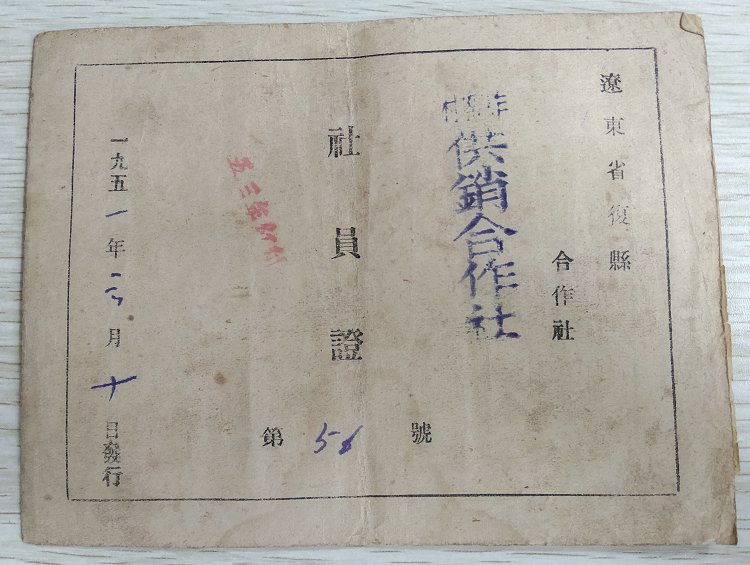 遼東省復縣
合作社
供銷合作社
社員證
第 58 號
一九五一年二月十日發行